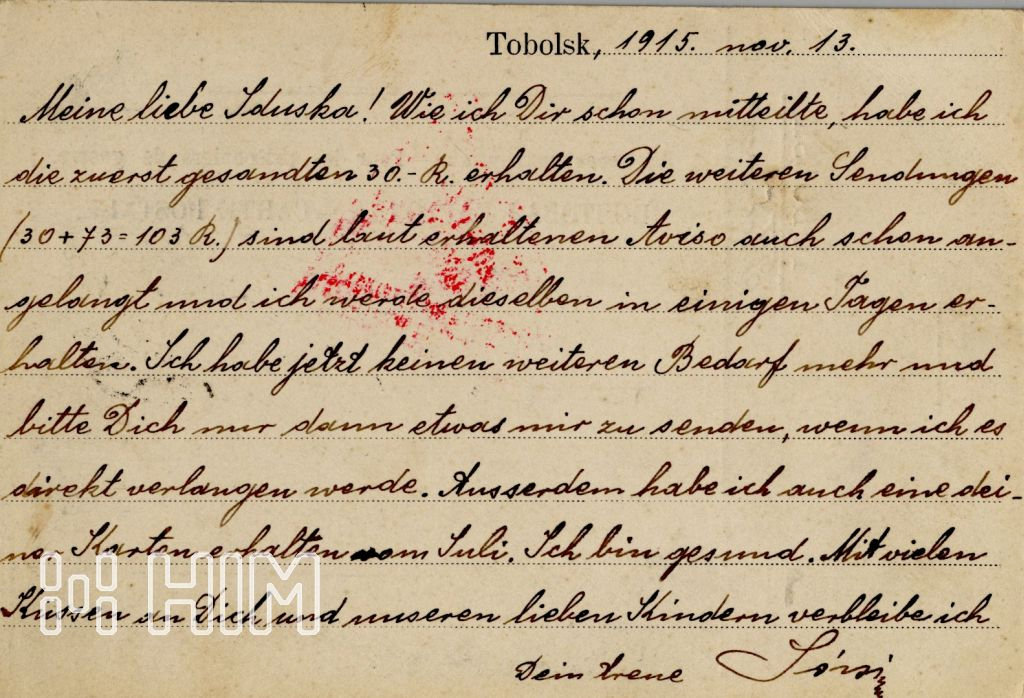 Tobolsk, 1915. nov. 13.
Meine liebe Iduska! Wie ich Dir schon mitteilte, habe ich
die zuerst gesandten 30.- R. erhalten. Die weiteren Sendungen
(30+73=103 R.) sind laut erhaltenen Aviso auch schon an-
gelangt und ich werde dieselben in einigen Tagen er-
halten. Ich habe jetzt keinen weiteren Bedarf mehr und
bitte Dich nur dann etwas mir zu senden, wenn ich es
direkt verlangen werde. Ausserdem habe ich auch eine dei-
ner Karten erhalten vom Juli. Ich bin gesund. Mit vielen
Küssen an Dich und unseren lieben Kindern verbleibe ich
Dein treue
HIM